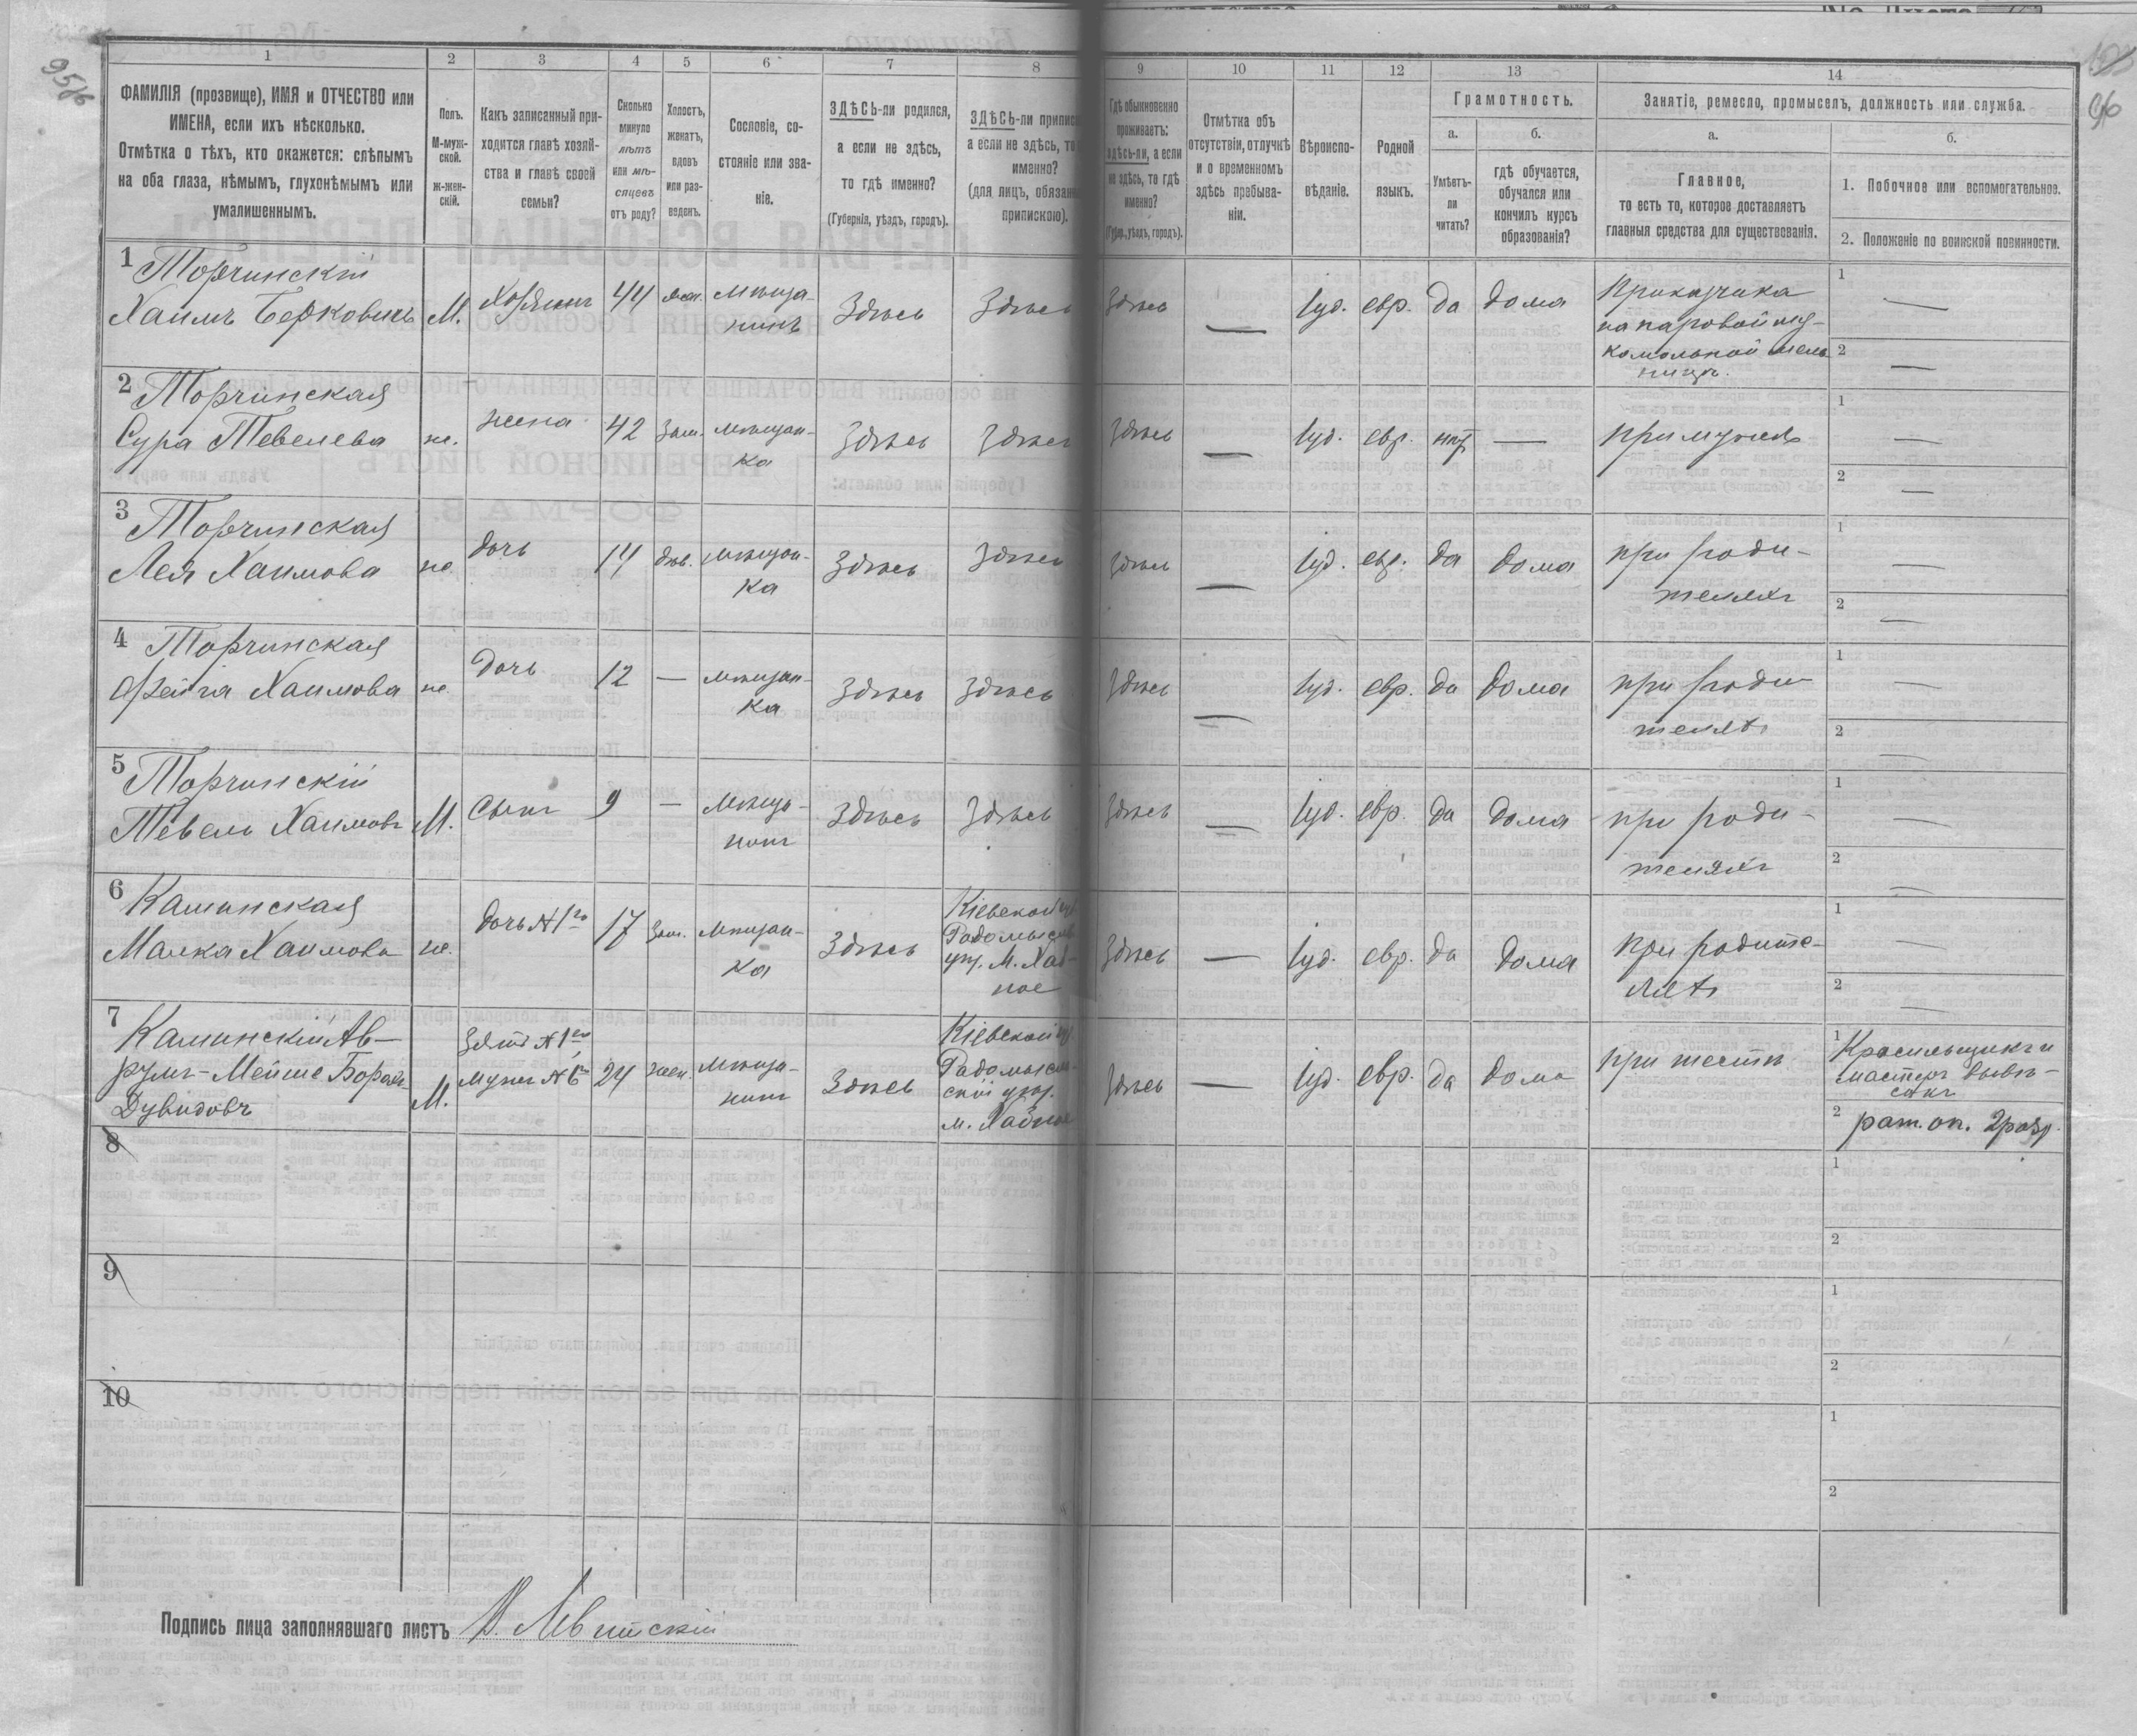 95/96
193
96
1
2
3
4
5
6
7
8
9
10
11
12
13
14
ФАМИЛІЯ (прозвище), ИМЯ и ОТЧЕСТВО или
ИМЕНА, если ихъ нѣсколько.
Отмѣтка о тѣхъ, кто окажется: слѣпымъ
на оба глаза, нѣмымъ, глухонѣмымъ или
умалишеннымъ.
Полъ.
М-муж-
ской.
ж-жен-
скій.
Какъ записанный при-
ходится главѣ хозяй-
ства и главѣ своей
семьи?
Сколько
минуло
лѣтъ
или мѣ-
сяцевъ
отъ роду?
Холостъ,
женатъ,
вдовъ
или раз-
веденъ.
Сословіе, со-
стояніе или зва-
ніе.
ЗДѢСЬ-ли родился,
а если не здѣсь,
то гдѣ именно?
(Губернія, уѣздъ, городъ).
ЗДѢСЬ-ли приписа
а если не здѣсь, то
именно?
(для лицъ, обязан
припискою).
Гдѣ обыкновенно
проживаетъ:
здѣсь-ли, а если
не здѣсь, то гдѣ
именно?
(Губер., уѣздъ, городъ).
Отмѣтка объ
отсутствіи, отлучкѣ
и о временномъ
здѣсь пребыва-
ніи.
Вѣроиспо-
вѣданіе.
Родной
языкъ.
Грамотность.
а.
б.
Умѣетъ-
ли
читать?
гдѣ обучается,
обучался или
кончилъ курсъ
образованія?
Занятіе, ремесло, промыселъ, должность или служба.
а.
б.
Главное,
то есть то, которое доставляетъ
главныя средства для существованія.
1. Побочное или вспомогательное.
2. Положеніе по воинской повинности.
1 Торчинскій
Хаимъ Берковичъ М. Хозяинъ 44 жен. мѣща-
нинъ Здѣсь Здѣсь Здѣсь — Іуд. евр. да дома Приказчика
на паровой му-
комольной мель
ницѣ.
1 —
2 —
2 Торчинская
Сура Тевелева ж. жена 42 зам. мѣщан-
ка Здѣсь Здѣсь Здѣсь — Іуд. евр. нѣт — при мужѣ
1 —
2 —
3 Торчинская
Лея Хаимова ж. дочь 14 дѣв. мѣщан-
ка Здѣсь Здѣсь Здѣсь — Іуд. евр. да дома при роди-
теляхъ
1 —
2 —
4 Торчинская
Фейга Хаимова ж. дочь 12 — мѣщан-
ка Здѣсь Здѣсь Здѣсь — Іуд. евр. да дома при роди-
телях
1 —
2 —
5 Торчинскій
Тевель Хаимовъ М. Сынъ 9 — мѣща-
нинъ Здѣсь Здѣсь Здѣсь — Іуд. евр. да дома при роди-
теляхъ
1 —
2 —
6 Каминская
Малка Хаимова ж. дочь №1го 17 зам. мѣщан-
ка Здѣсь Кіевской гу
Радомысль
уѣз. М. Хаб-
ное Здѣсь — Іуд. евр. да дома при родите-
лях
1 —
2 —
7 Каминскій Ав-
румъ-Мейше Борох-
Дувидовъ М. Зять №1го
мужъ №6го 24 жен. мѣща-
нинъ Здѣсь Кіевской гу
Радомысль-
скій уѣз.
м. Хабное Здѣсь — Іуд. евр. да дома при тестѣ
1 Красильщикъ и
мастеръ вывѣ-
сокъ
2 рат. оп. 2 разр.
8
1
2
9
1
2
10
1
2
1
2
Подпись лица заполнявшаго листъ Левитскій